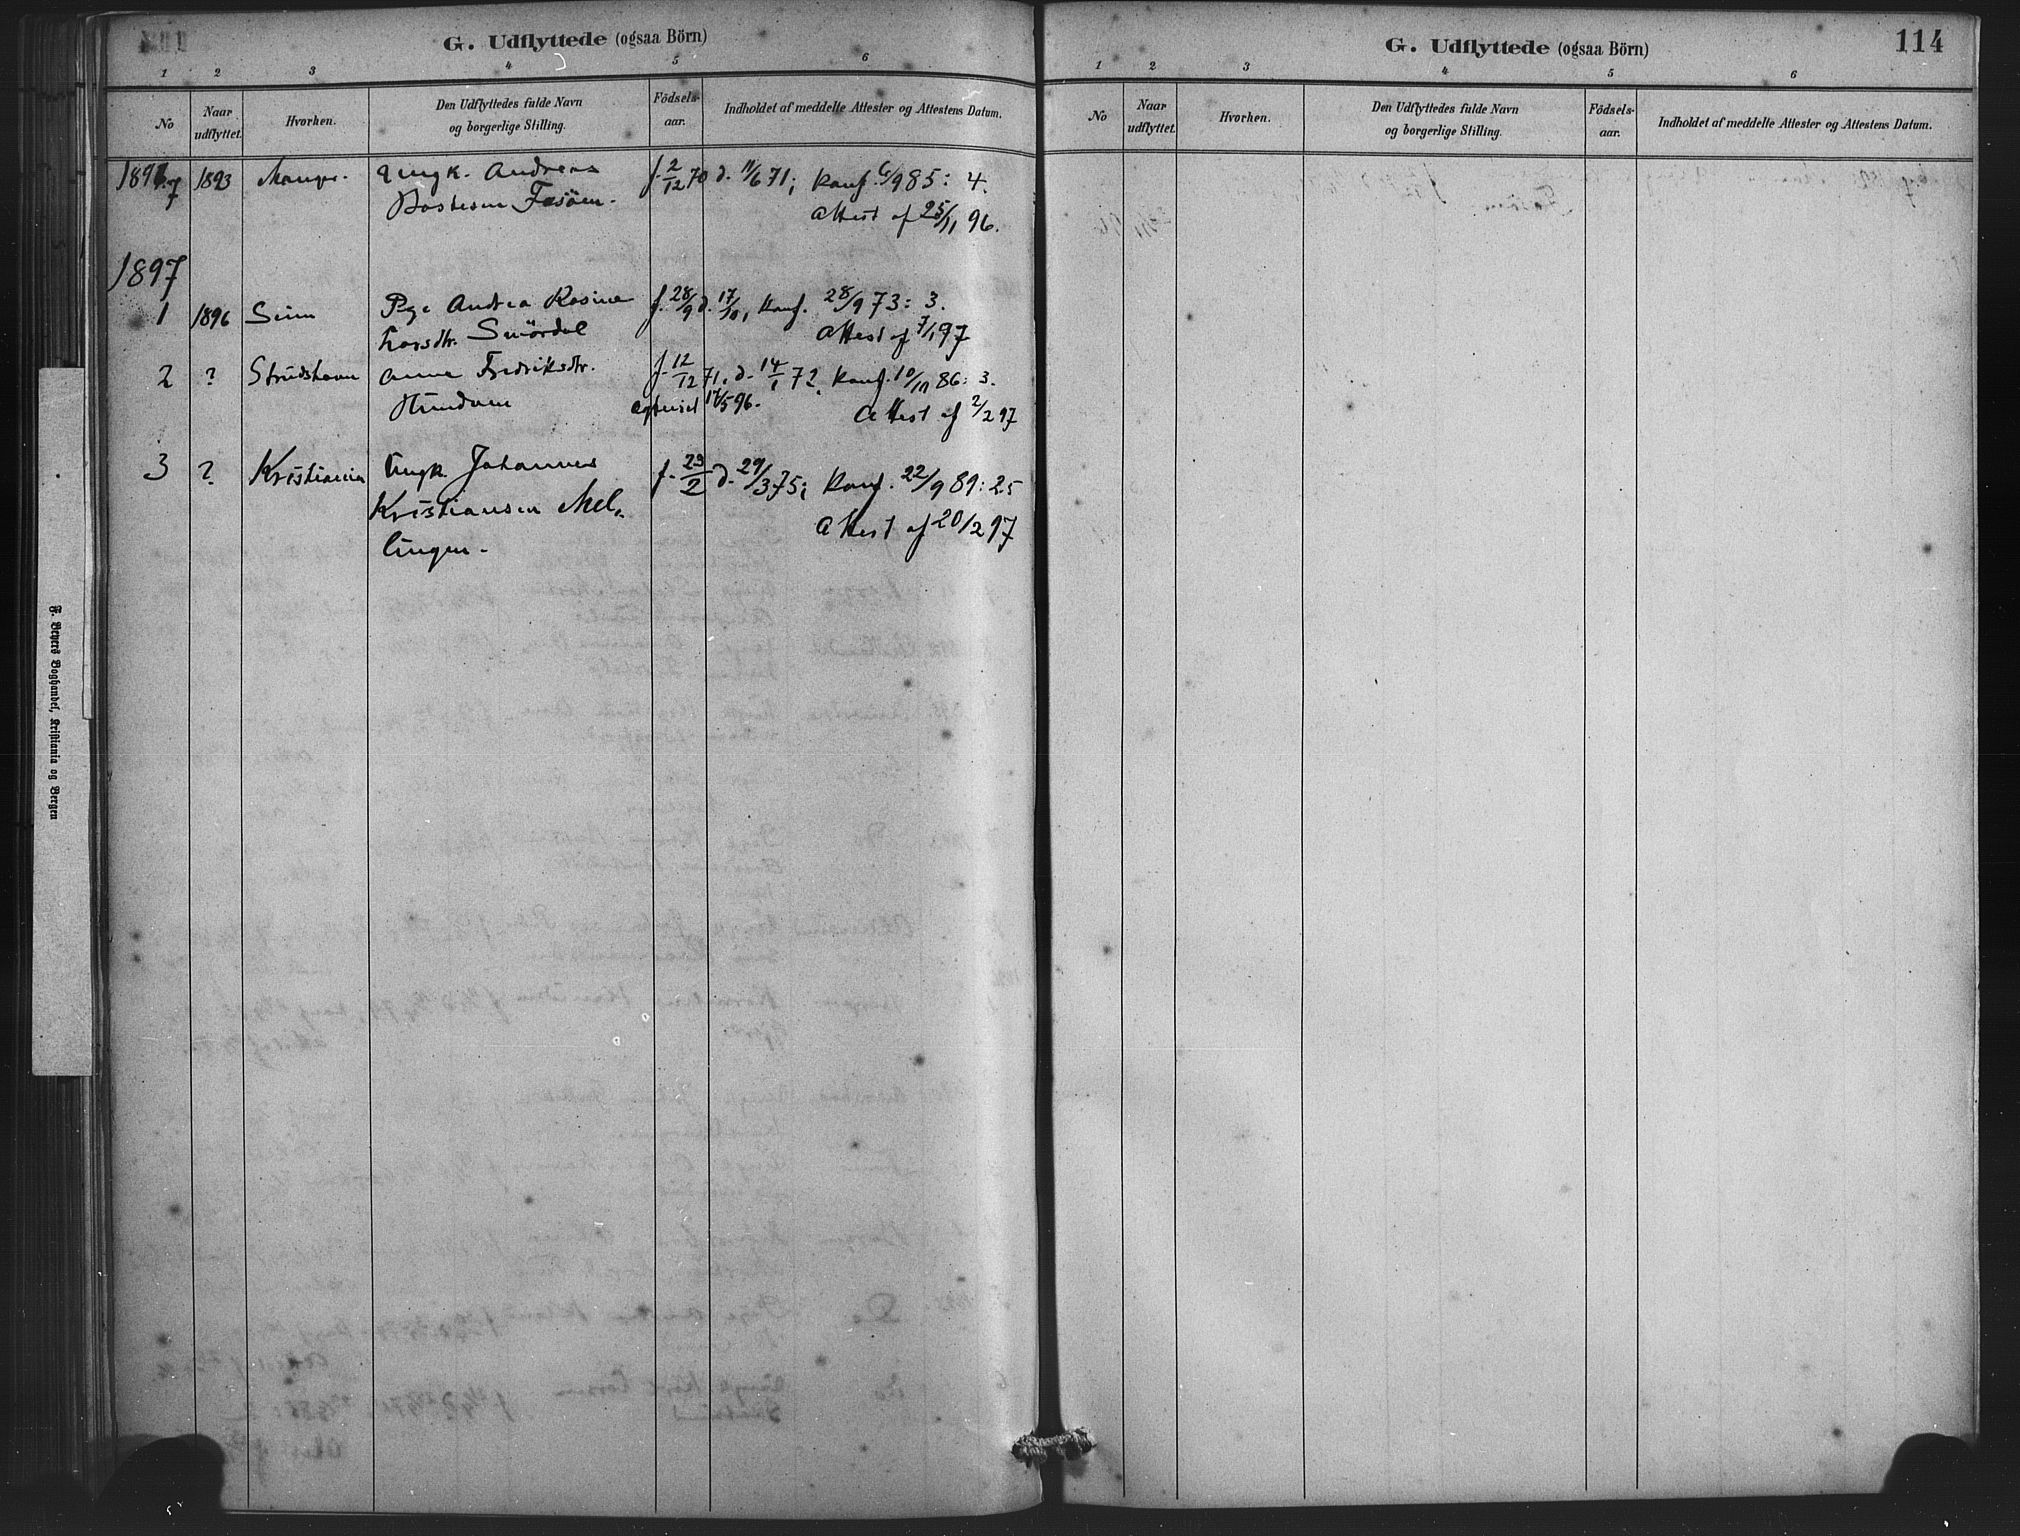 G. Udflyttede (ogsaa Börn)
1 2 3 4 5 6
No
Naar udflyttet.
Hvorhen.
Den Udflyttedes fulde Navn og borgerlige Stilling.
Födsels-aar.
Indholdet af meddelte Attester og Attestens Datum.
7 1893 Manger. Ungk. Andreas f. 2/12 70 d. 11/6 71; konf. 6/9 85: 4.
Fosöen. Attest af 25/11 96.
1897
1 1896 Seim Pge Andrea Rasine f. 28/9 d. 17/10, konf. 28/9 73: 3.
Larsdtr. Smördal Attest af 7/1 97
2 ? Strudshavn Anne Fredriksdtr. f. 12/12 71. d. 14/1 72. konf. 10/10 86: 3.
Hundven 96. Attest af 2/2 97
3 ? Kristiania Ungk. Johannes f. 23/2 d. 29/3 75; konf. 22/9 89: 25
Kristiansen Mel-
lingen. Attest af 20/2 97
G. Udflyttede (ogsaa Börn)
114
1 2 3 4 5 6
No
Naar udflyttet.
Hvorhen.
Den Udflyttedes fulde Navn og borgerlige Stilling.
Födsels-aar.
Indholdet af meddelte Attester og Attestens Datum.
F. Beyers Boghandel, Kristiania og Bergen